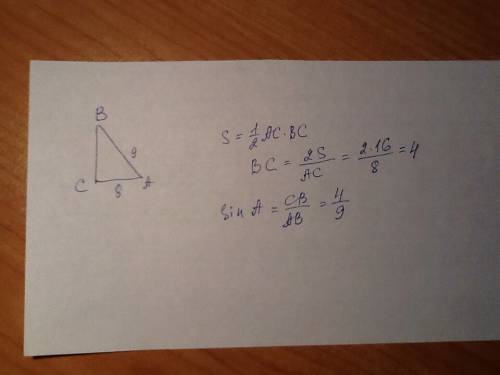 B
9
C 8 A
S = 1/2 AC · BC
BC = 2S/AC = 2·16/8 = 4
Sin A = CB/AB = 4/9